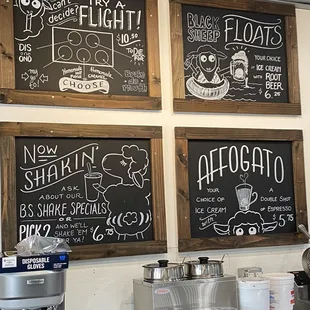 can't decide?
TRY A
FLIGHT!
$10.50
DIS
Homemade
CARAMEL
CHOOSE
BLACK
SHEEP
FLOATS
YOUR CHOICE
OF
ICE CREAM
WITH
ROOT
BEER
$6.25
NOW
SHAKIN'
ASK
ABOUT OUR
BS SHAKE SPECIALS
OR
PICK 2
AND WE'LL
SHAKE 'EM FOR YA!
$6.75
AFFOGATO
YOUR
CHOICE OF
ICE CREAM
WITH
A
DOUBLE SHOT
OF ESPRESSO
$5.75
DISPOSABLE
GLOVES